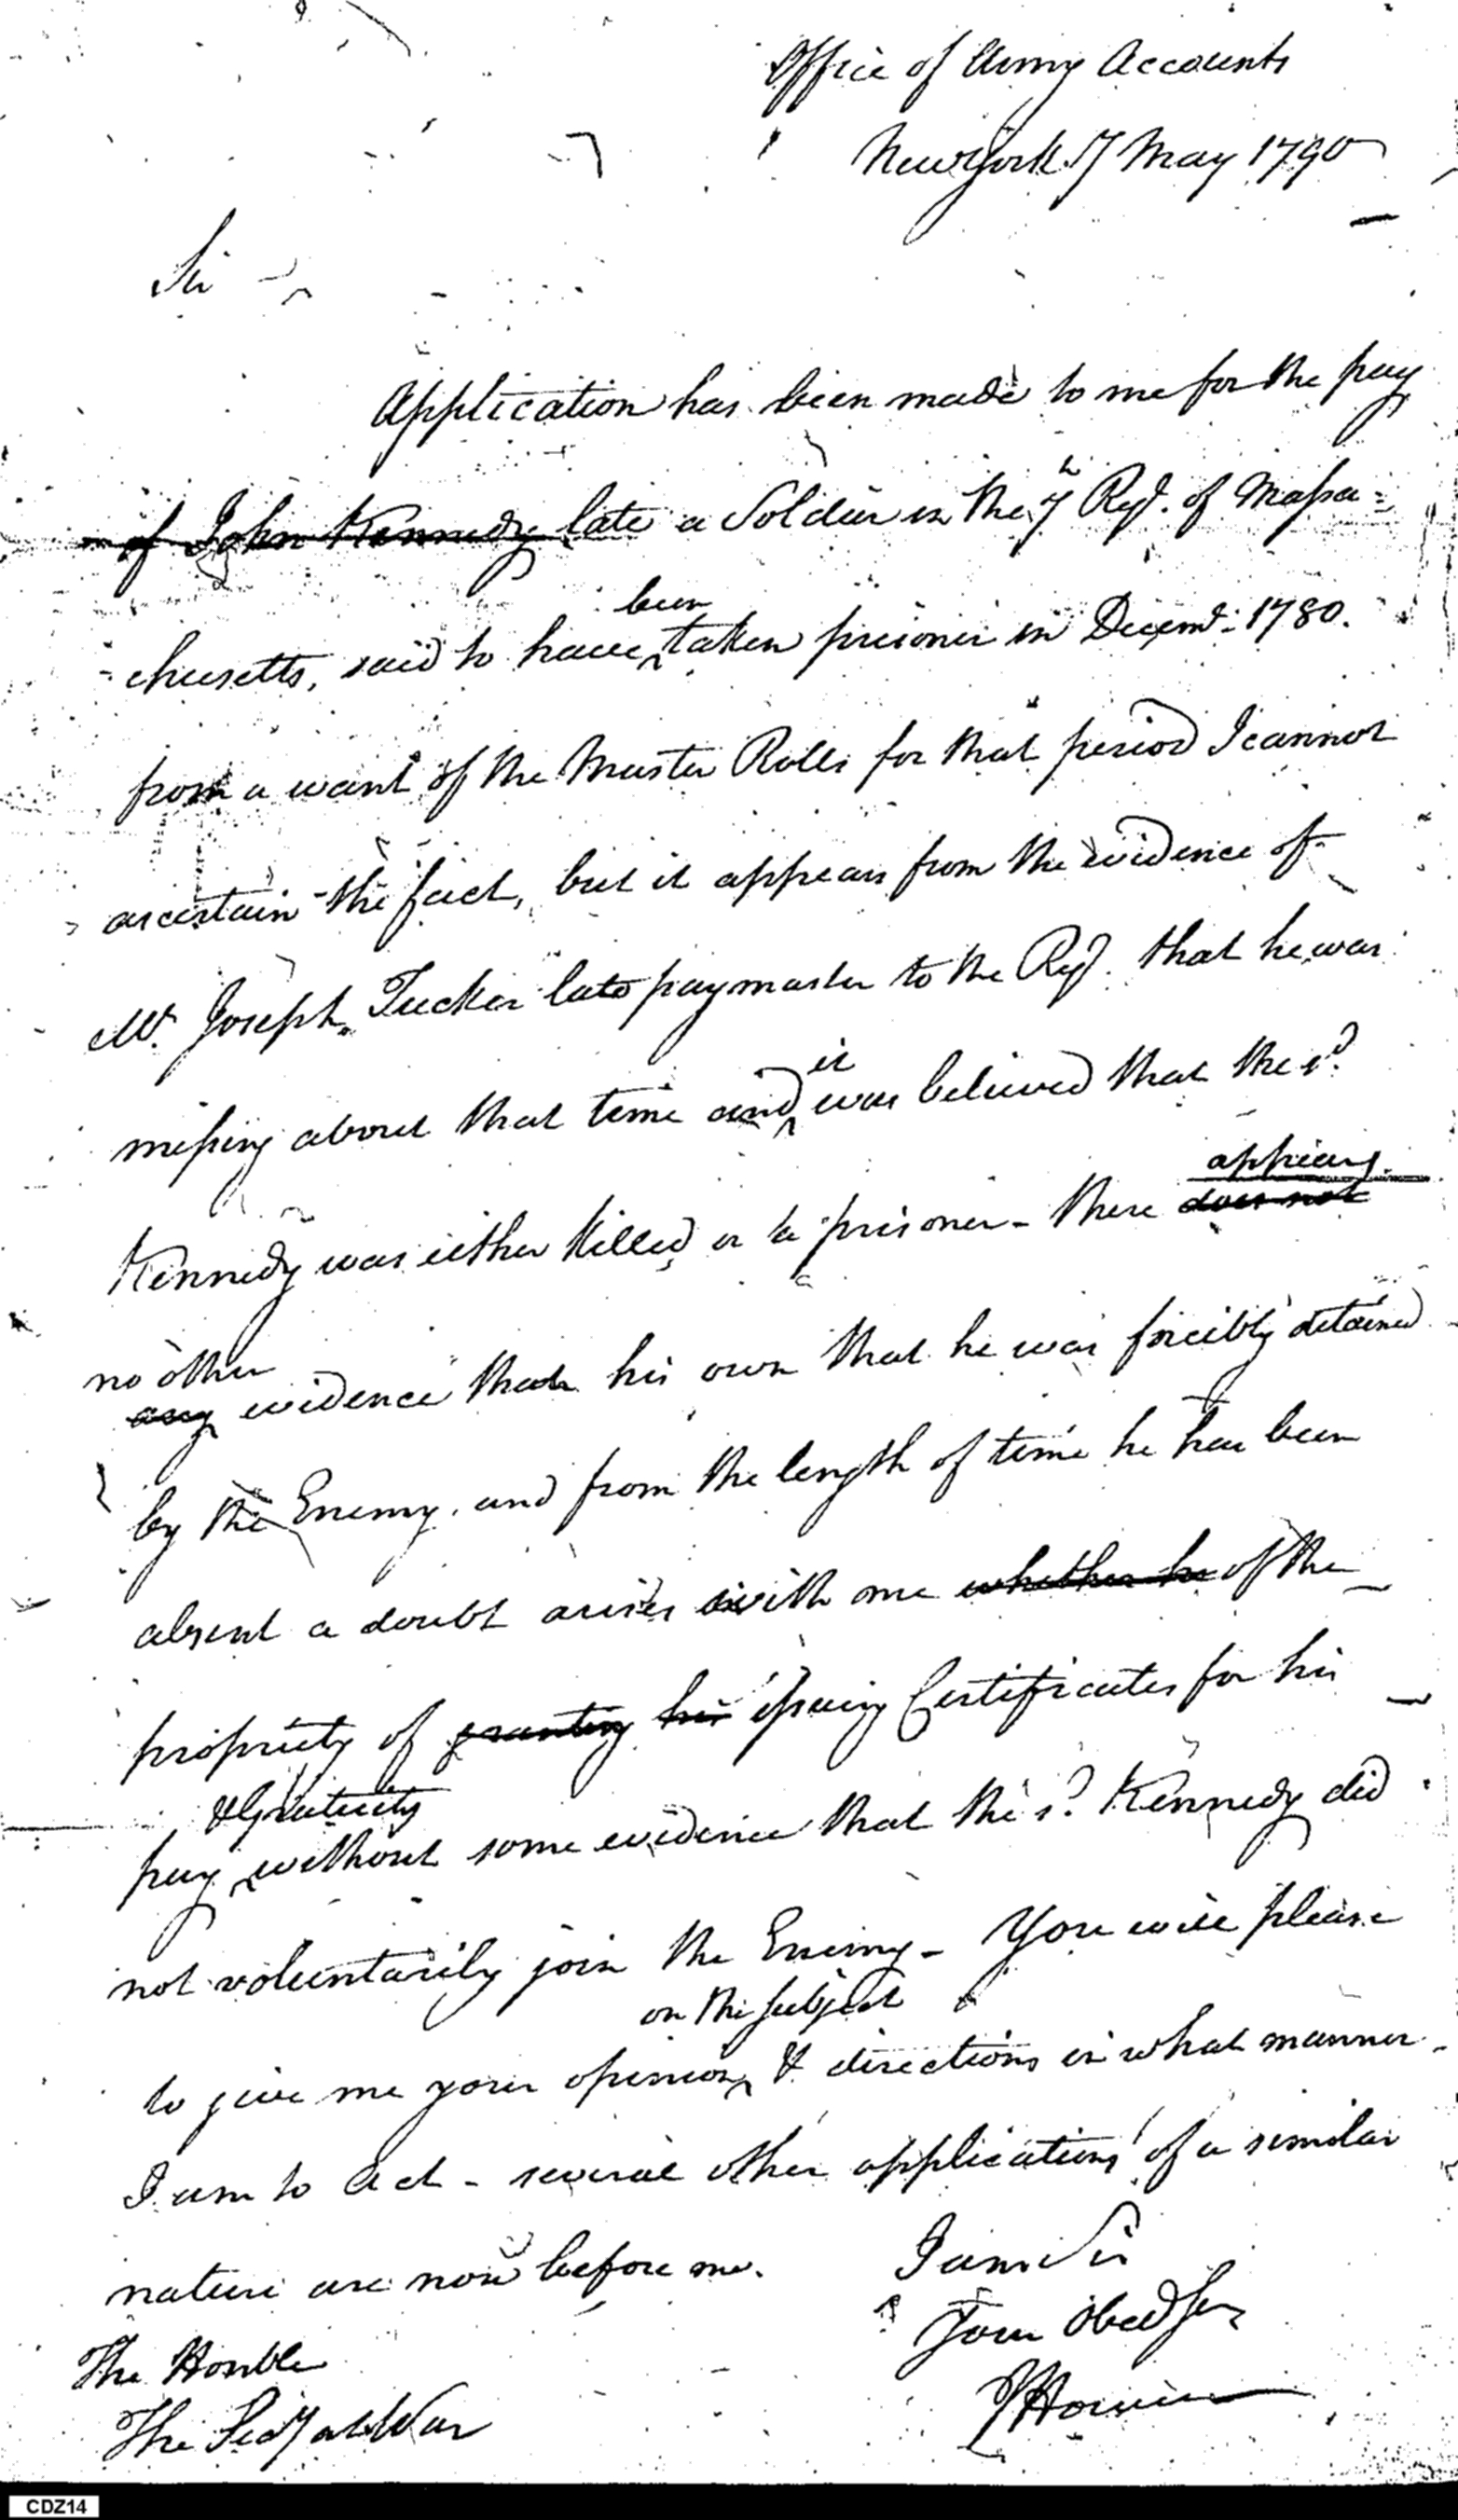 Office of Army Accounts
New York 17 May 1790
Sir
Application has been made to me for the pay
of John Kennedy late a Soldier in the 7th Regt. of Massa=
chusetts, said to have been taken prisoner in Decemr. 1780.
from a want of the Muster Rolls for that period I cannot
ascertain the fact, but it appears from the evidence of
Mr. Joseph Tucker late paymaster to the Regt. that he was
missing about that time and it was believed that the sd.
Kennedy was either killed or a prisoner - there does not appears
no other any evidence than his own that he was forcibly detained
by the Enemy, and from the length of time he has been
absent a doubt arises with me whether he of the
propriety of granting his issuing Certificates for his
pay & Gratuity without some evidence that the sd. Kennedy did
not voluntarily join the Enemy - You will please
to give me your opinion on the subject & directions in what manner
I am to Act - several other applications of a similar
nature are now before me.
I am Sir
Your Obed Ser
JHowell
The Honble
The Secy at War
CDZ14